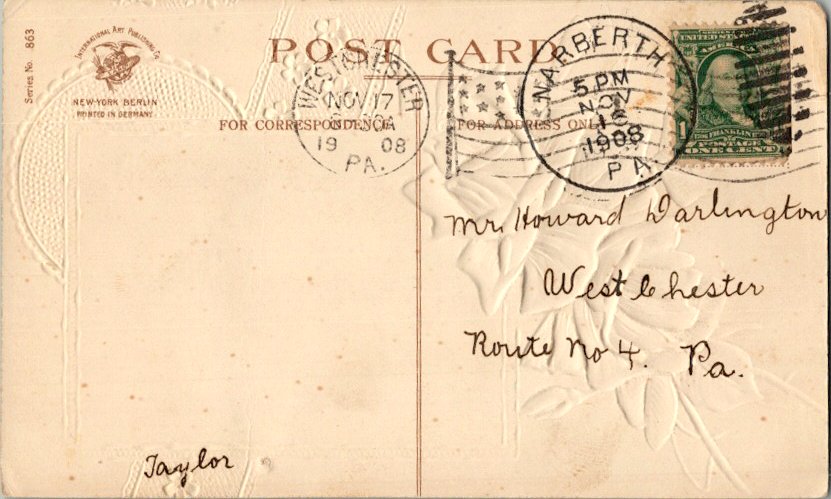 Series No. 863
INTERNATIONAL ART PUBLISHING Co.
NEW-YORK BERLIN
PRINTED IN GERMANY
POST CARD
FOR CORRESPONDENCE
FOR ADDRESS ONLY
WEST CHESTER
NOV 17
19 08
PA.
NARBERTH
5 PM
NOV
16
1908
PA
UNITED STATES
OF AMERICA
FRANKLIN
POSTAGE
ONE CENT
Mr. Howard Darlington
West Chester
Route No 4. Pa.
Taylor